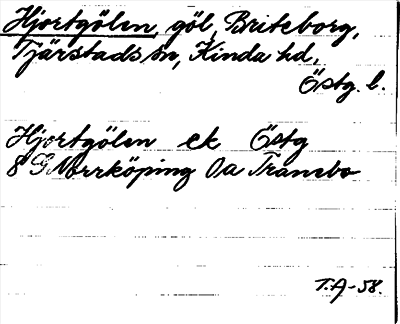 Hjortgölen, göl, Briteborg,
Tjärstads sn, Kinda hd,
Östg. l.
Hjortgölen ek Östg
8 G Norrköping 0a Tranebo
T.A-58.